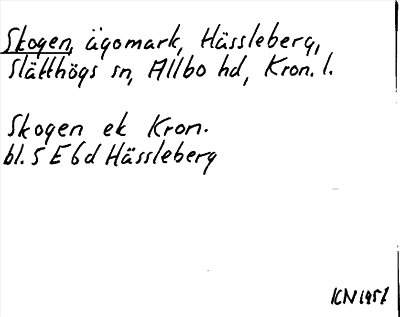 Skogen, ägomark, Hässleberg,
Slätthögs sn, Allbo hd, Kron. l.
Skogen ek Kron.
bl. 5 E 6d Hässleberg
ICN 1957